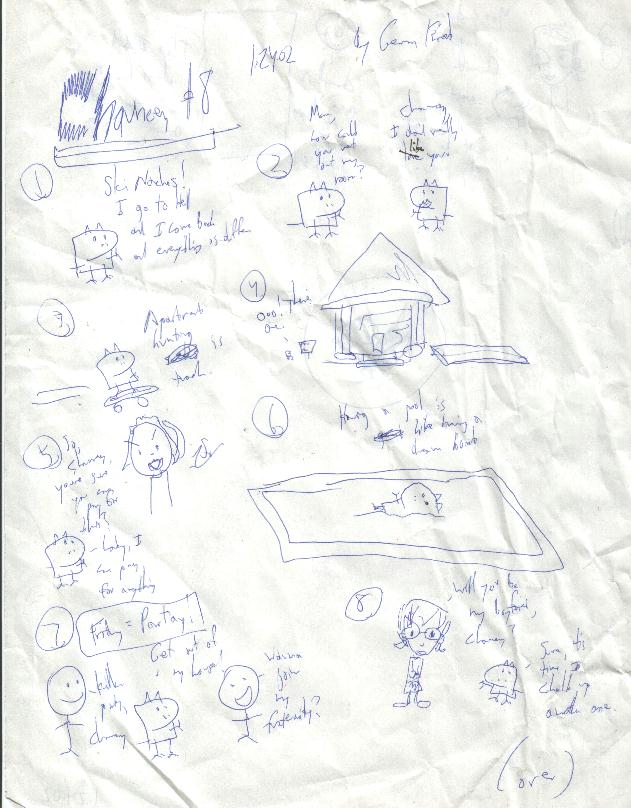 1.24.02
by
#8
1
Ski Naches!
I go to hell
and I come back
and everything is differen
2
Mom,
how could
you rent
out my
room?
Chauncey
I don't really
like
your
3
Apartment
hunting
is
4
Ooo! There
5
So,
Chauncey,
you're sure
you can
pay for
this?
Lady, I
can pay
for anything
6
Having a pool is
like having a
dream house
7
Friday = Partay!
killer
party,
Chauncey
Get out of
my house!
Wanna
join
my
fraternity?
8
Will you be
my boyfriend,
Chauncey?
Sure, it's
time I
chalk up
another one.
(over)